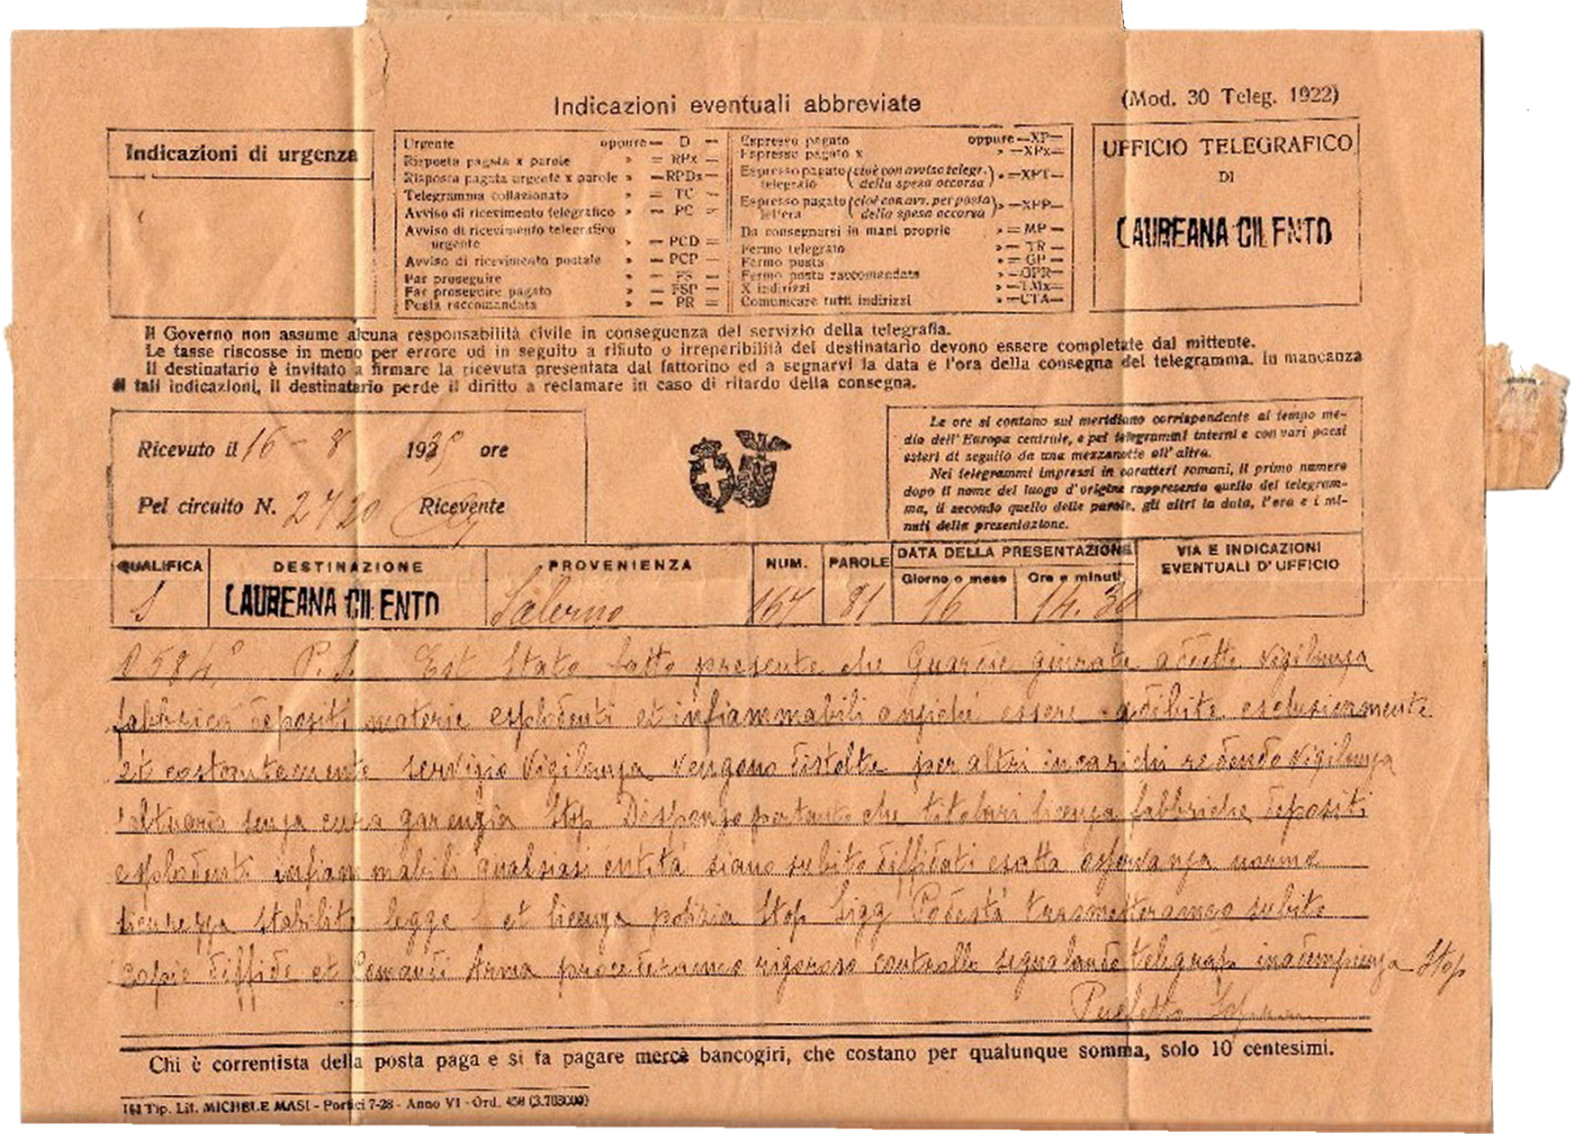 Indicazioni eventuali abbreviate
(Mod. 30 Teleg. 1922)
Indicazioni di urgenza
Urgente oppure — D —
Risposta pagata x parole » = RPx —
Risposta pagata urgente x parole » — RPDx —
Telegramma collazionato » = TC —
Avviso di ricevimento telegrafico » — PC =
Avviso di ricevimento telegrafico
urgente » — PCD =
Avviso di ricevimento postale » — PCP —
Far proseguire » — FS —
Far proseguire pagato » — FSP —
Posta raccomandata » — PR =
Espresso pagato oppure —XP—
Espresso pagato x » —XPx—
Espresso pagato (cioè con avviso telegr.
telegrafo della spesa occorsa) » —XPT—
Espresso pagato (cioè con avv. per posta
lettera della spesa occorsa) » —XPP—
Da consegnarsi in mani proprie » = MP —
Fermo telegrafo » — TR —
Fermo posta » — GP —
Fermo posta raccomandata » —GPR—
X indirizzi » —TMx=
Comunicare tutti indirizzi » —CTA—
UFFICIO TELEGRAFICO
DI
LAUREANA CILENTO
Il Governo non assume alcuna responsabilità civile in conseguenza del servizio della telegrafia.
Le tasse riscosse in meno per errore od in seguito a rifiuto o irreperibilità del destinatario devono essere completate dal mittente.
Il destinatario è invitato a firmare la ricevuta presentata dal fattorino ed a segnarvi la data e l'ora della consegna del telegramma. In mancanza
di tali indicazioni, il destinatario perde il diritto a reclamare in caso di ritardo della consegna.
Ricevuto il 16 - 8 193 ore
Pel circuito N. 2720 Ricevente
Le ore si contano sul meridiano corrispondente al tempo me-
dio dell'Europa centrale, e pei telegrammi interni e con vari paesi
esteri di seguito da una mezzanotte all'altra.
Nei telegrammi impressi in caratteri romani, il primo numero
dopo il nome del luogo d'origine rappresenta quello del telegram-
ma, il secondo quello delle parole, gli altri la data, l'ora e i mi-
nuti della presentazione.
QUALIFICA DESTINAZIONE PROVENIENZA NUM. PAROLE DATA DELLA PRESENTAZIONE VIA E INDICAZIONI
EVENTUALI D'UFFICIO
Giorno e mese Ore e minuti
S LAUREANA CILENTO Salerno 167 81 16 14.30
P.S. Est stato fatto presente che Guardie giurate addette vigilanza
fabbrica depositi materie esplodenti et infiammabili anziché essere adibite esclusivamente
et costantemente servizio vigilanza vengono distolte per altri incarichi vigilanza
senza garenzia Stop Dispongo pertanto che titolari licenza fabbriche depositi
esplodenti infiammabili qualsiasi entità siano subito diffidati esatta osservanza norme
sicurezza stabilite legge et licenza polizia Stop Sigg Podestà trasmetteranno subito
copie diffide et Comandi Arma procederanno rigoroso controllo segnalando inadempienza Stop
Prefetto
Chi è correntista della posta paga e si fa pagare mercè bancogiri, che costano per qualunque somma, solo 10 centesimi.
161 Tip. Lit. MICHELE MASI - Portici 7-28 - Anno VI - Ord. 458 (3.703000)